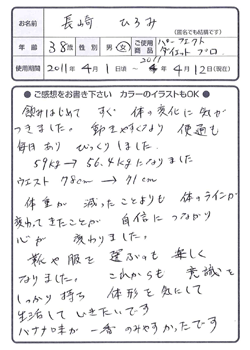 お名前 長崎 ひろみ
(匿名でも結構です)
年齢 38歳 性別 男・女 ご使用商品 パーフェクトダイエットプロ
使用期間 2011年4月1日頃～2011年4月12日(現在)
●ご感想をお書き下さい カラーのイラストもOK●
飲みはじめて すぐ 体の変化に気が
つきました。 便通も
毎日あり びっくりしました。
59kg→56.4kgになりました
ウエスト 78cm→71cm
体重が 減ったことよりも 体のラインが
変わってきたことが 自信につながり
心が 変わりました。
靴や服を 選ぶのも 楽しく
なりました。 これからも 意識を
しっかり持ち 体形を気にして
生活していきたいです
バナナ味が 一番 のみやすかったです